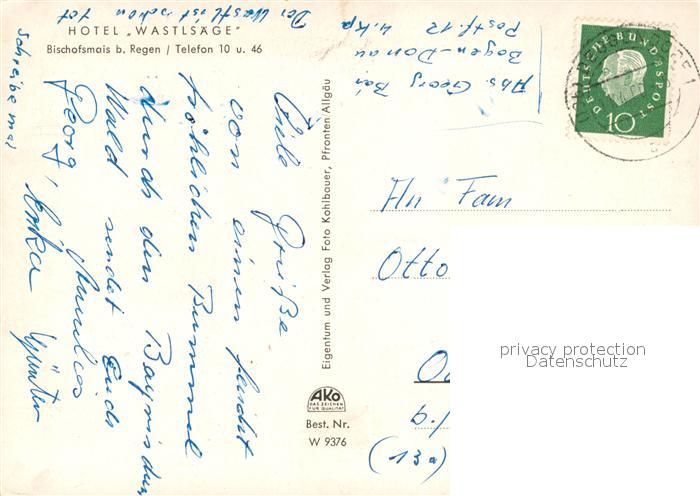 HOTEL „WASTLSÄGE"
Bischofsmais b. Regen / Telefon 10 u. 46
Der Wastl ist schon tot
Schreibe mal
Viele Grüße
von einem
fröhlichen Bummel
durch den Bayrischen
Wald sendet Euch
Georg,
Günter
Eigentum und Verlag Foto Kohlbauer, Pfronten/Allgäu
AKO
DAS ZEICHEN
FÜR QUALITÄT
Best. Nr.
W 9376
Abs. Georg
Bogen-Donau
Postf. 12
4. Kp
DEUTSCHE BUNDESPOST
10
An Fam
Otto
(13a)
privacy protection
Datenschutz